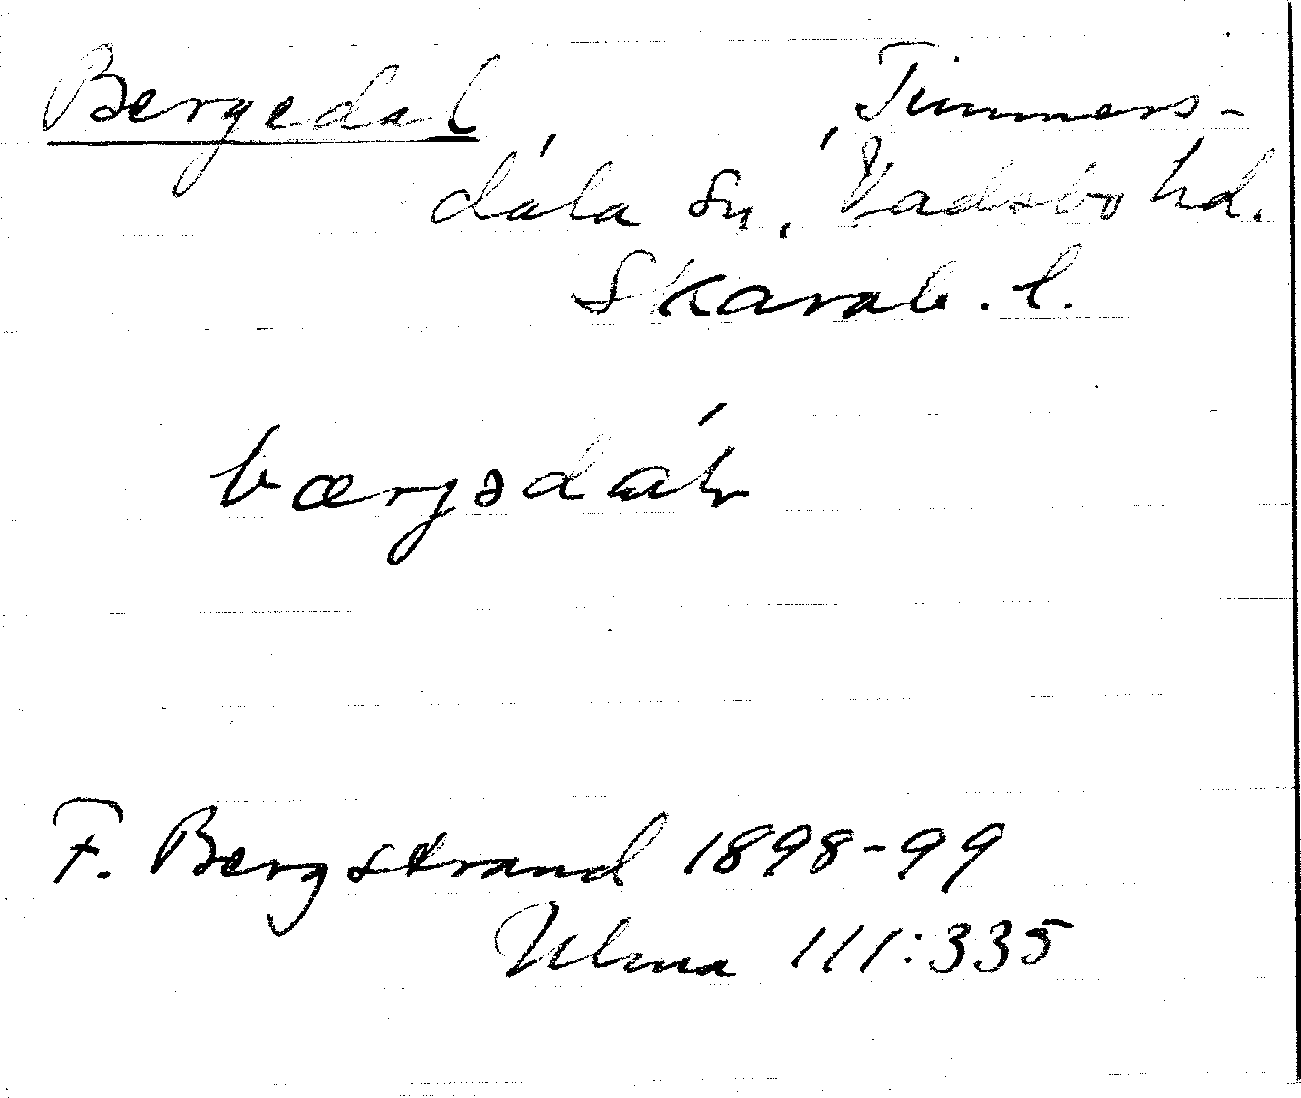 Bergedal, , Timmers-
dala sn, Vadsbo hd.
Skarab. l.
F. Bergstrand 1898-99
Ulma 111:335